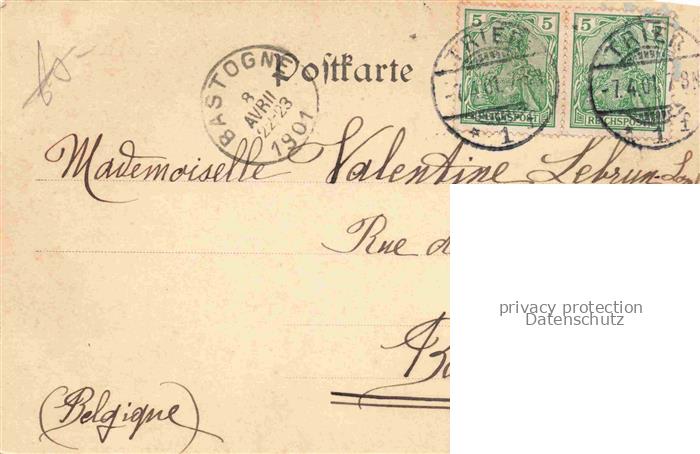 5 5 5 5
TRIER TRIER
BASTOGNE Postkarte
8 -7.4.01. -7.4.01.
AVRIL
22-23
1901
REICHSPOST REICHSPOST
* 1 * 1
Mademoiselle Valentine Lebrun-
Rue d
privacy protection
Datenschutz
(Belgique)